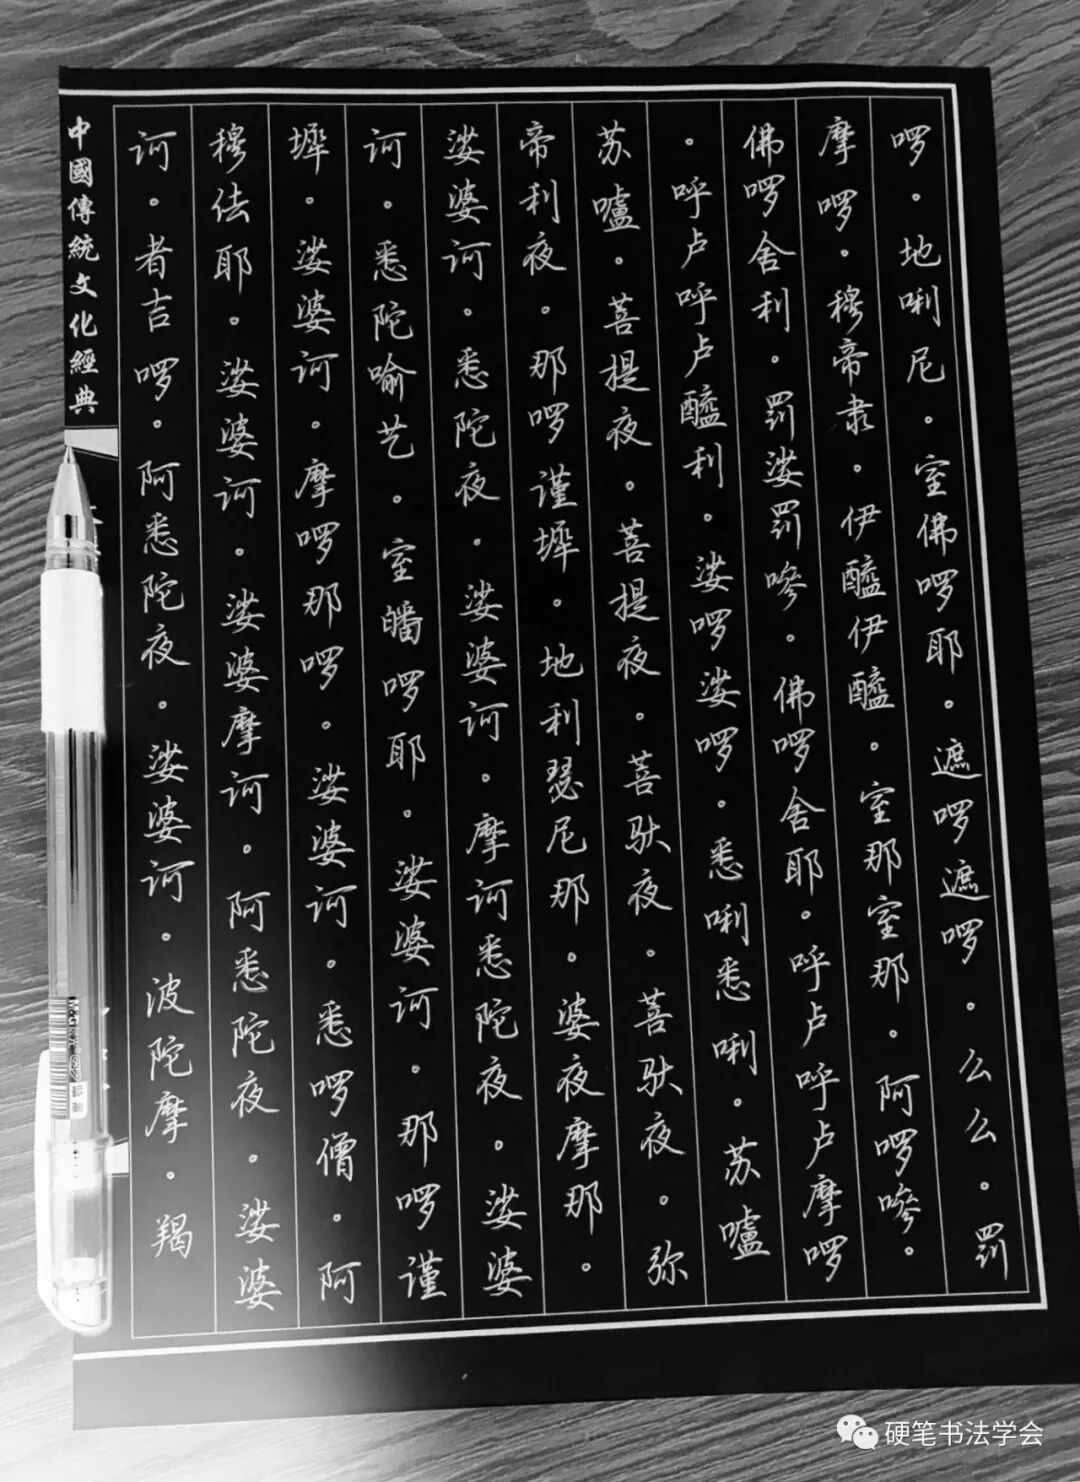 啰。地唎尼。室佛啰耶。遮啰遮啰。么么。罚
摩啰。穆帝隶。伊醯伊醯。室那室那。阿啰嘇。
佛啰舍利。罚娑罚嘇。佛啰舍耶。呼卢呼卢摩啰
。呼卢呼卢醯利。娑啰娑啰。悉唎悉唎。苏嚧
苏嚧。菩提夜。菩提夜。菩驮夜。菩驮夜。弥
帝利夜。那啰谨墀。地利瑟尼那。婆夜摩那。
娑婆诃。悉陀夜。娑婆诃。摩诃悉陀夜。娑婆
诃。悉陀喻艺。室皤啰耶。娑婆诃。那啰谨
墀。娑婆诃。摩啰那啰。娑婆诃。悉啰僧。阿
穆佉耶。娑婆诃。娑婆摩诃。阿悉陀夜。娑婆
诃。者吉啰。阿悉陀夜。娑婆诃。波陀摩。羯
中國傳統文化經典
硬笔书法学会